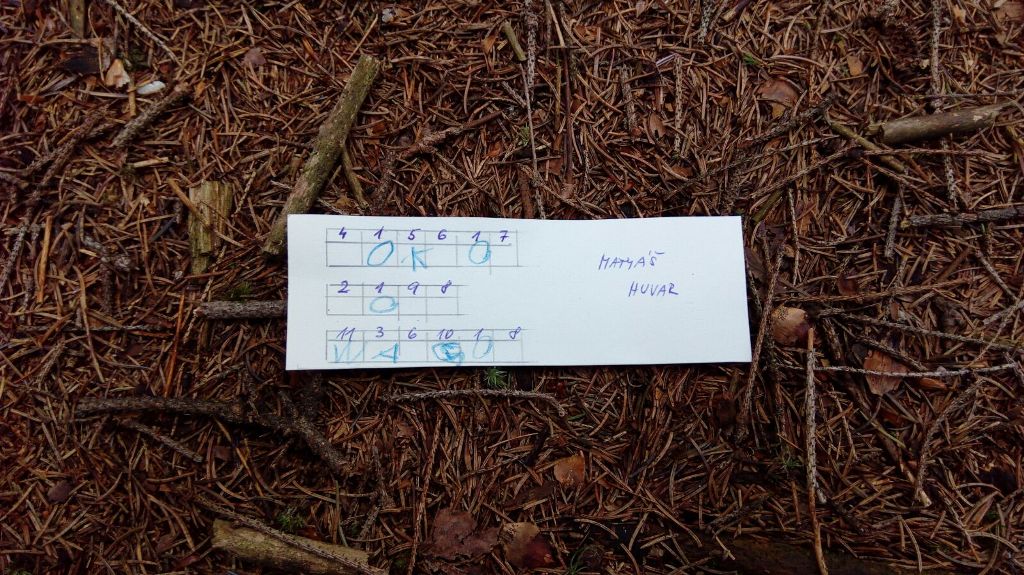 4 1 5 6 1 7
O K O
2 1 9 8
O
11 3 6 10 1 8
MATYÁŠ
HUVAR